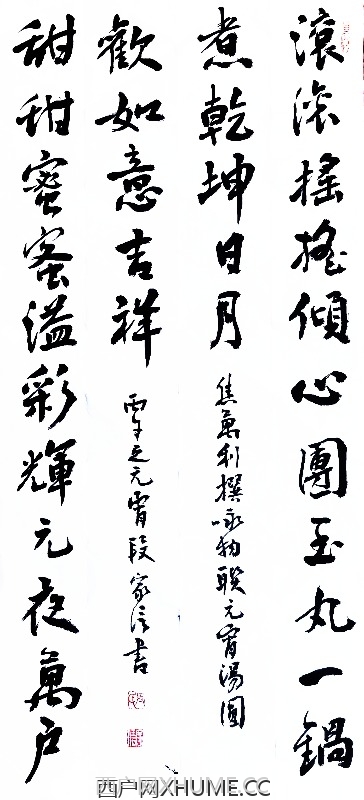 滚滚搖搖傾心團玉丸一鍋
煮乾坤日月
焦萬利撰咏物联元宵湯圆
甜甜蜜蜜溢彩輝元夜萬户
歡如意吉祥
之元宵段家信書
西户网XHUME.CC